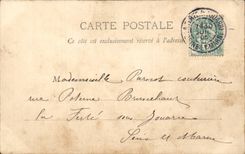 CARTE POSTALE
Ce côté est exclusivement réservé à l'adresse
Mademoiselle Parrot couturière
rue
La Ferté sous Jouarre
Seine et Marne